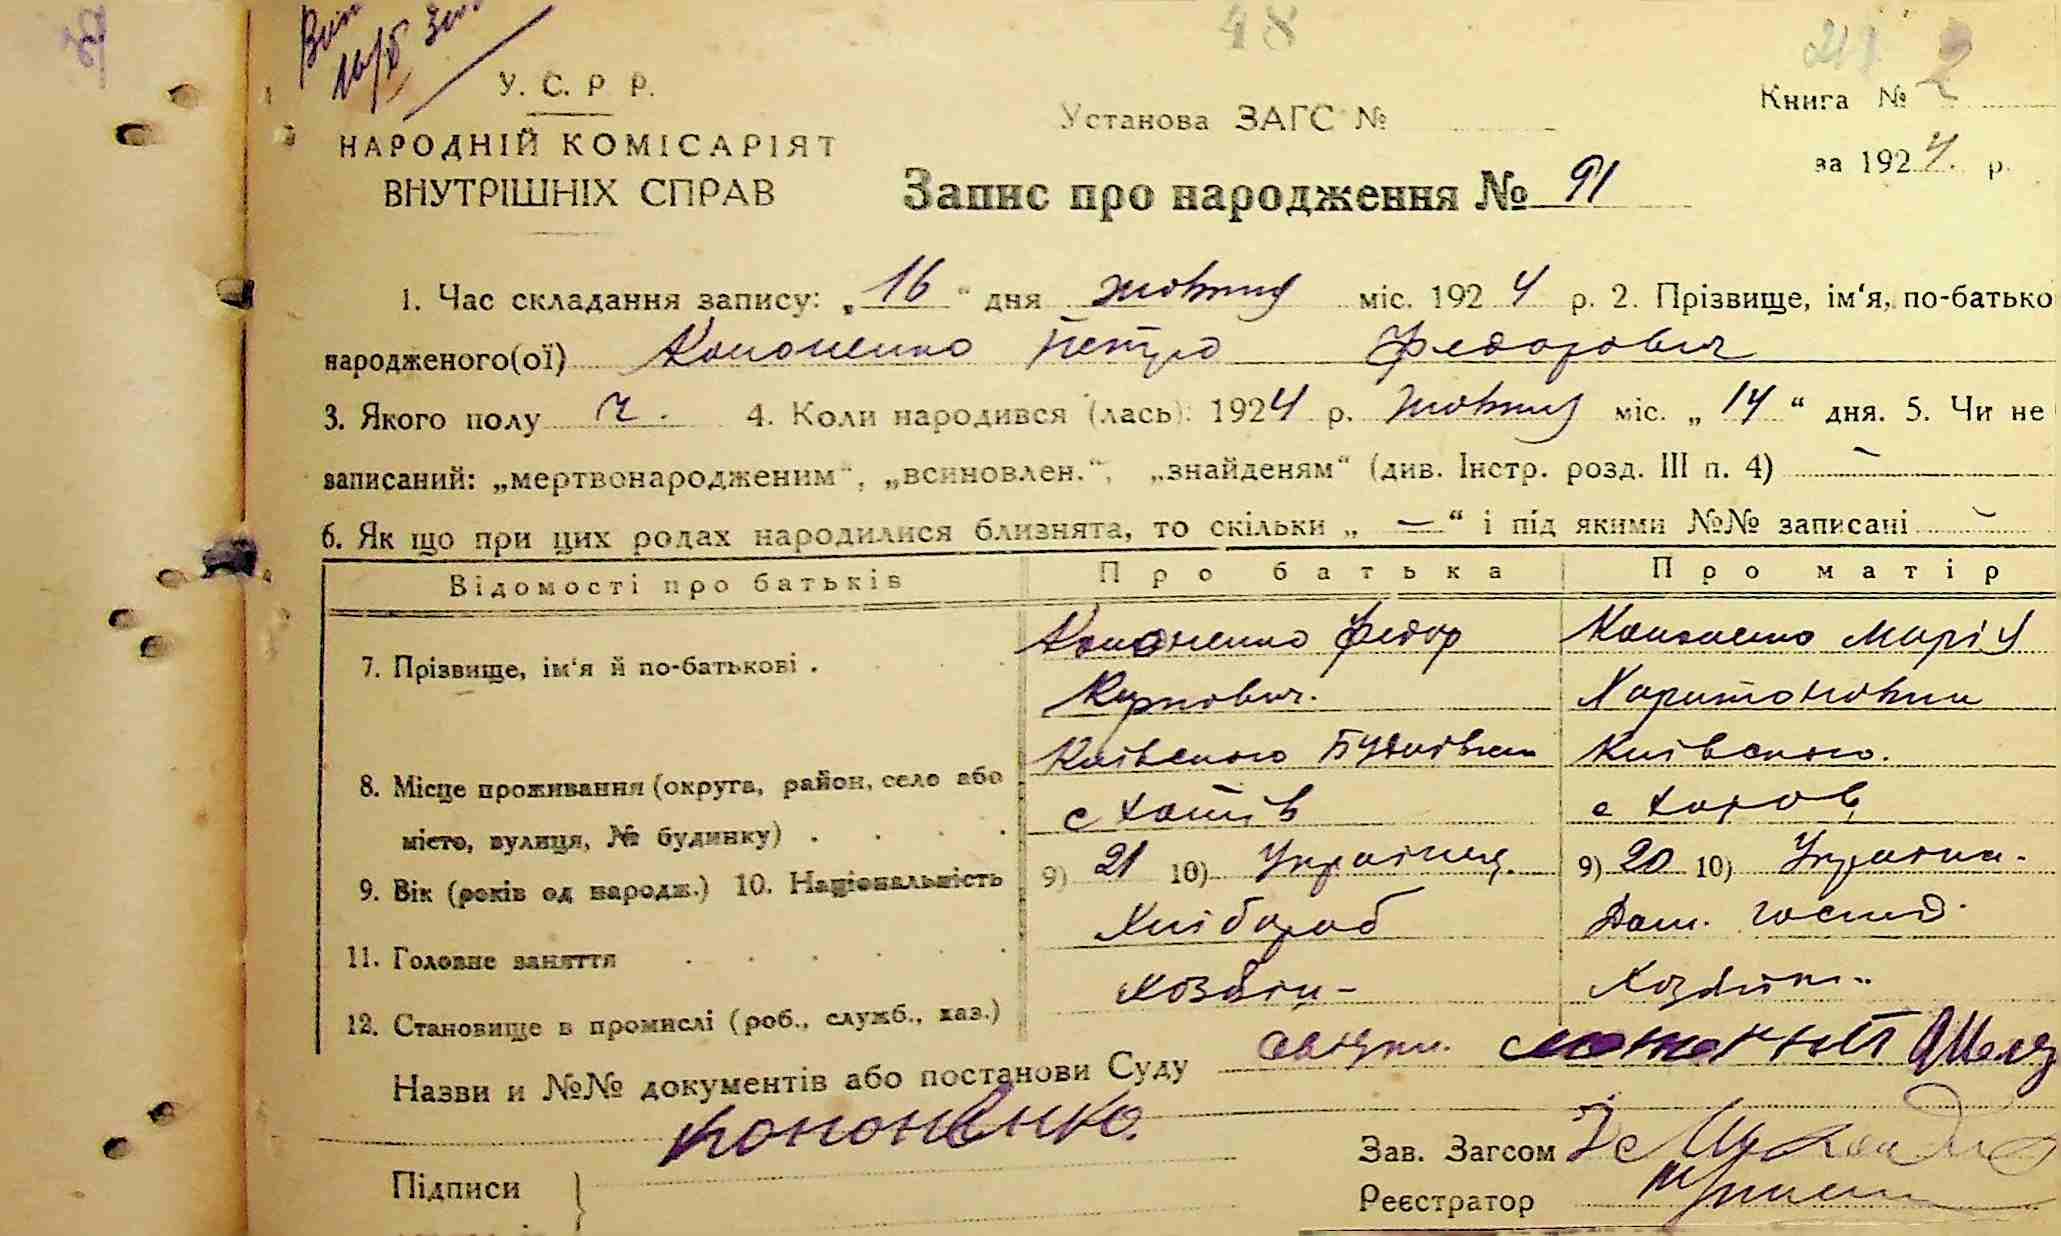 48
2
У. С. Р Р.
Установа ЗАГС №
Книга №
НАРОДНІЙ КОМІСАРІЯТ
за 1924. р.
ВНУТРІШНІХ СПРАВ
Запис про народження № 91
1. Час складання запису: „16“ дня жовтня міс. 1924 р. 2. Прізвище, ім‘я, по-батько
народженого(ої) Кононенко Петро Федорович
3. Якого полу ч. 4. Коли народився (лась): 1924 р. жовтня міс. „14“ дня. 5. Чи не
записаний: „мертвонародженим“, „всиновлен.“, „знайденям“ (див. Інстр. розд. III п. 4) —
6. Як що при цих родах народилися близнята, то скільки „ — “ і під якими №№ записані —
Відомості про батьків Про батька Про матір
7. Прізвище, ім‘я й по-батькові . Кононенко Федор Кононенко Марія
Карпович. Харитоновна
8. Місце проживання (округа, район, село або Київського Київського.
місто, вулиця, № будинку) . с Хотів с Хотов
9. Вік (років од народж.) 10. Національність 9) 21 10) Українец. 9) 20 10) Українка.
11. Головне заняття Хлібороб Дом. господ.
12. Становище в промислі (роб., служб., хаз.) хозяін –
Назви и №№ документів або постанови Суду
Кононенко.
Зав. Загсом
Підписи
Реєстратор